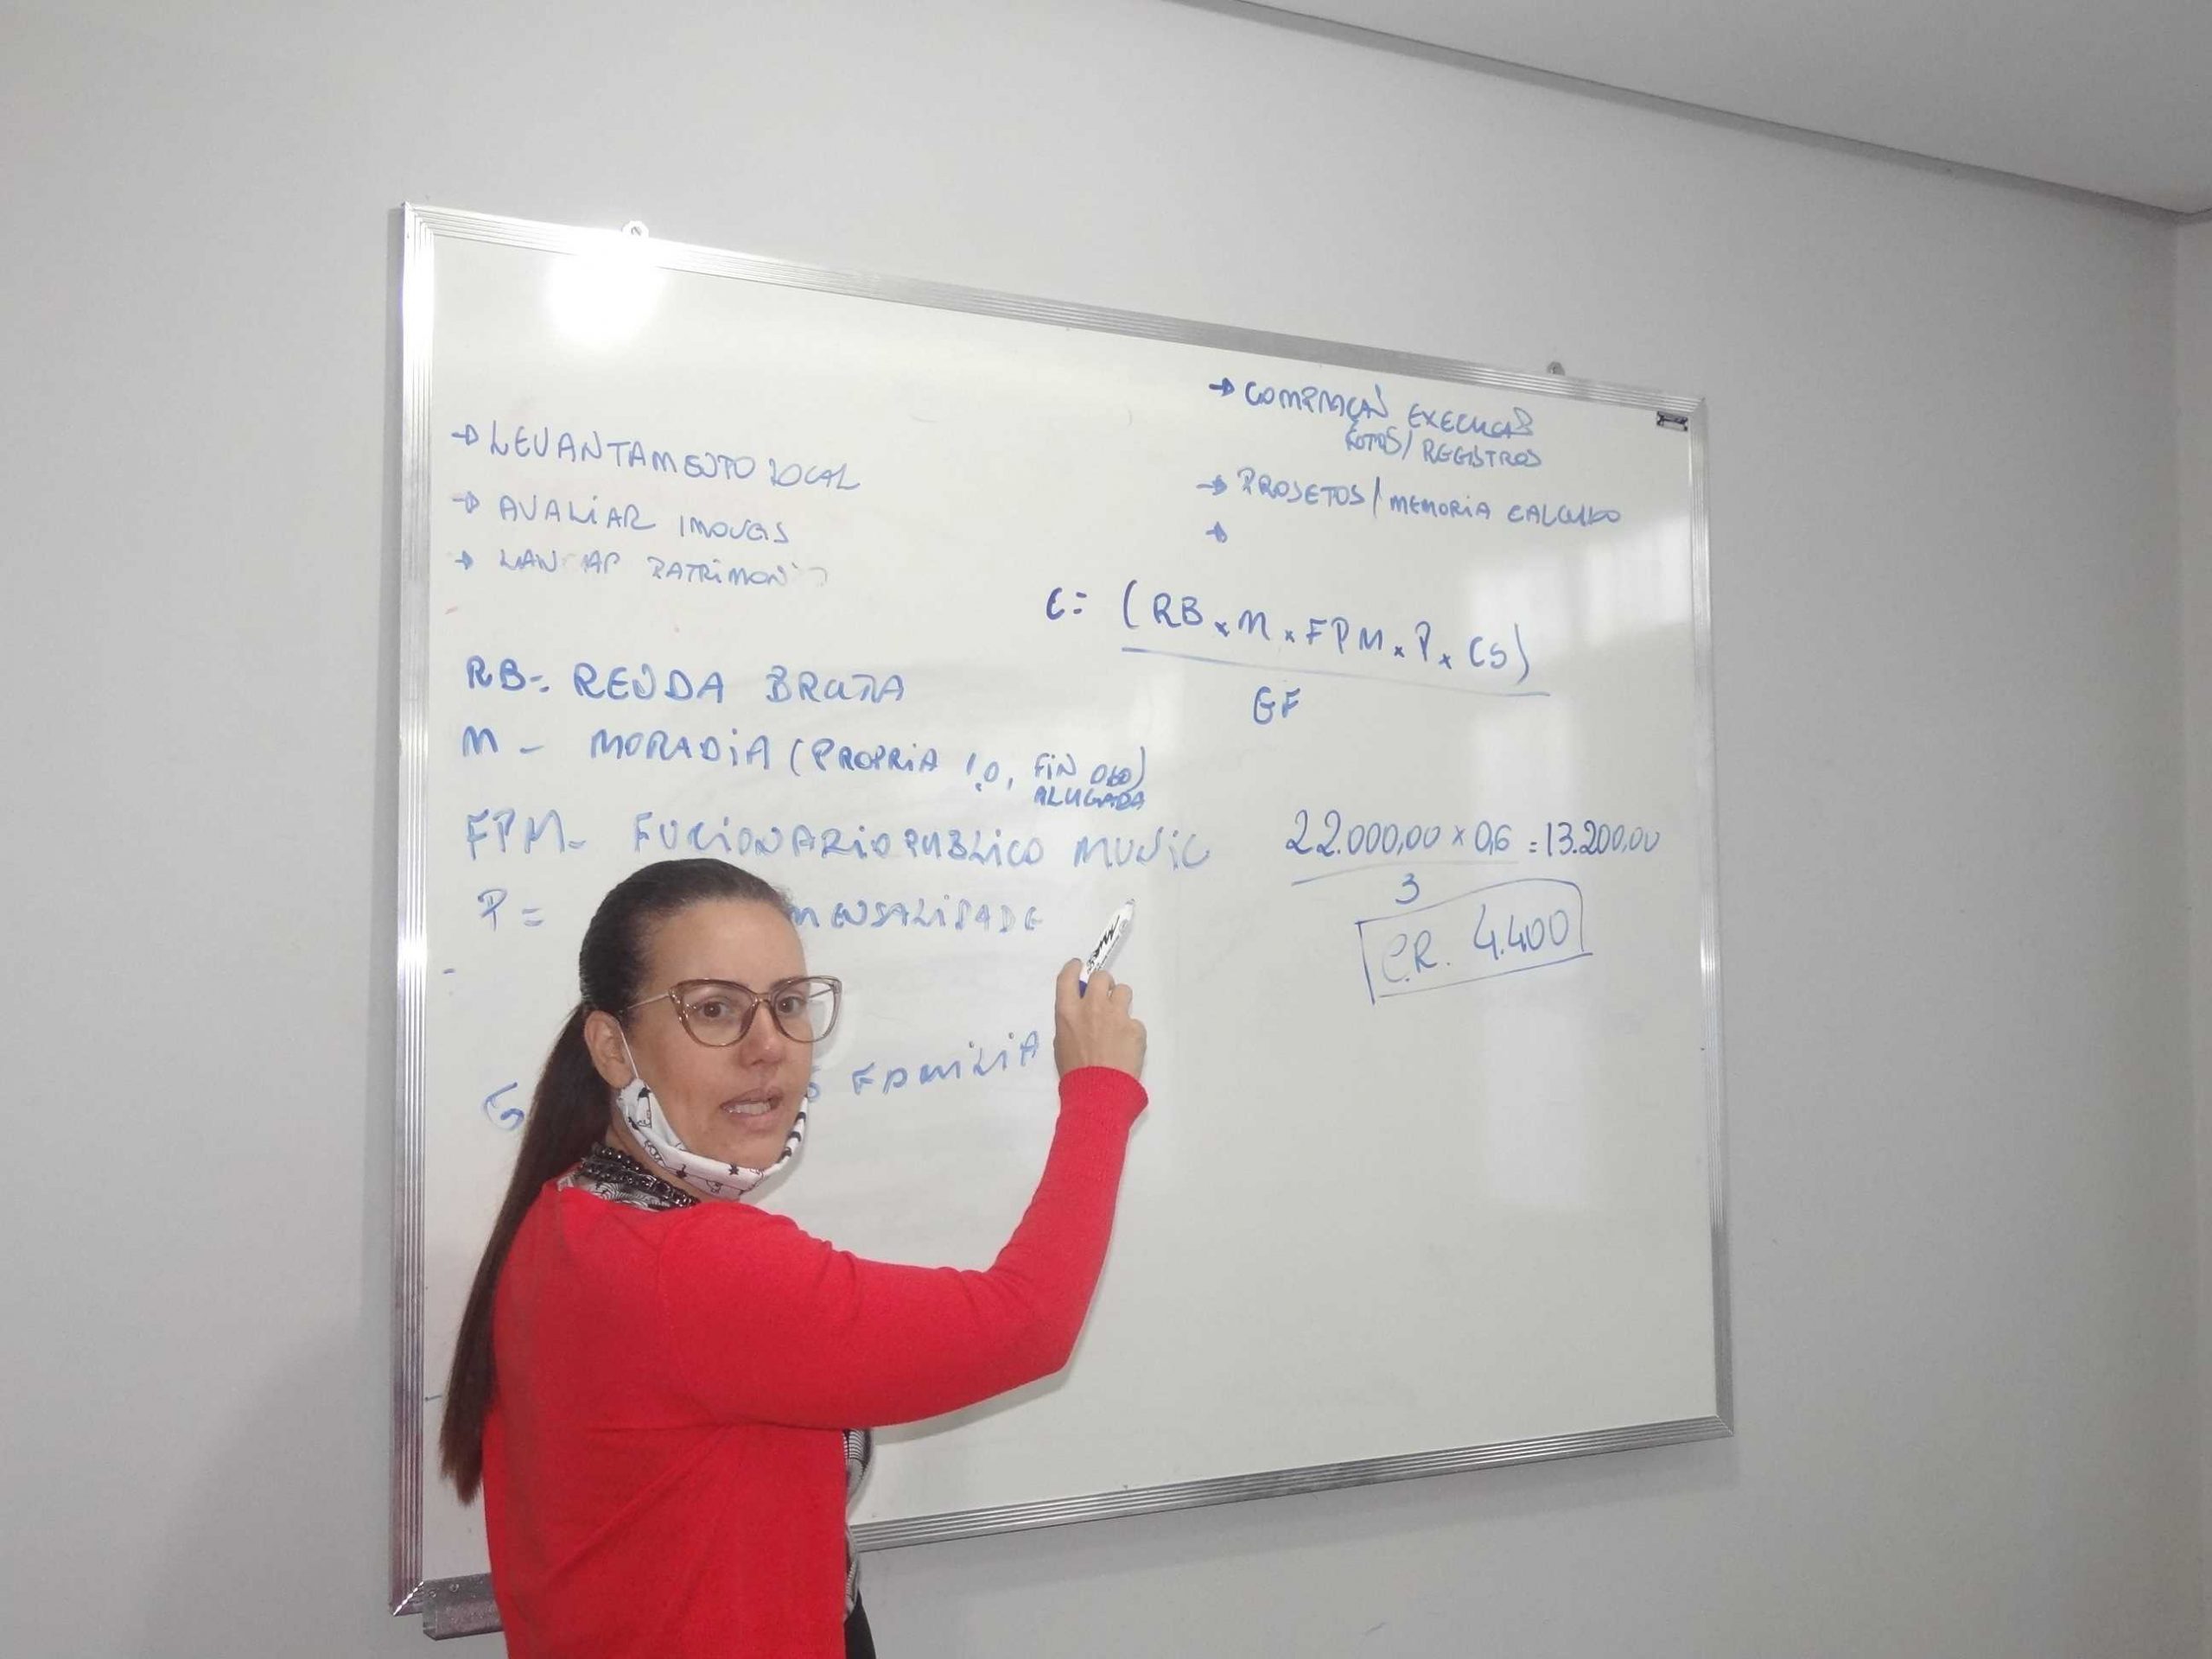 → LEVANTAMENTO LOCAL
→ AVALIAR IMOVEIS
→ LAN AP PATRIMONI
→ COMPRAÇÃO EXECUÇÃO
FOTOS / REGISTROS
→ PROJETOS / MEMORIA CALCULO
→
C = (RB x M x FPM x P x CS)
GF
RB = RENDA BRUTA
M - MORADIA (PROPRIA 1.0, FIN 0,60)
ALUGADA
FPM = FUCIONARIO PUBLICO MUNIC
P = MENSALIDADE
G FAMILIA
22.000,00 x 0,6 = 13.200,00
3
C.R. 4.400